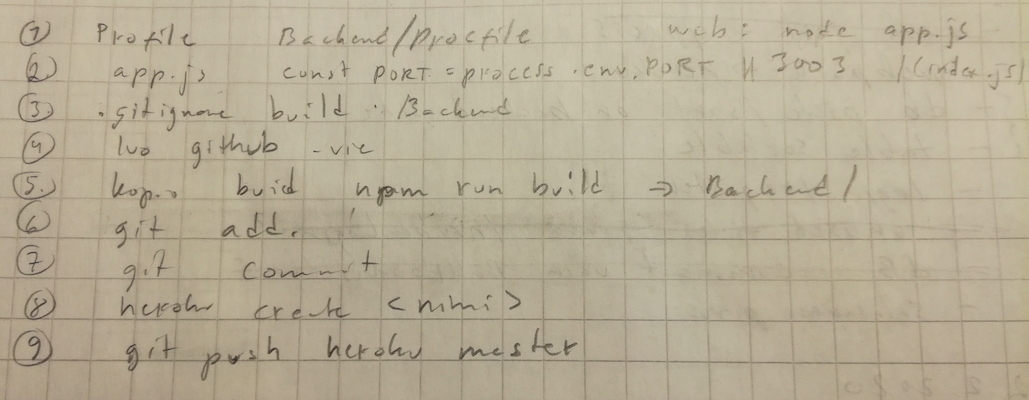 ① Profile Backend/Procfile web: node app.js
② app.js const PORT = process.env.PORT || 3003 /(index.js)
③ .gitignore build ./Backend
④ luo github -vie
⑤. kopio buid npm run build => Backend/
⑥ git add.
⑦ git commit
⑧ heroku create <nimi>
⑨ git push heroku master